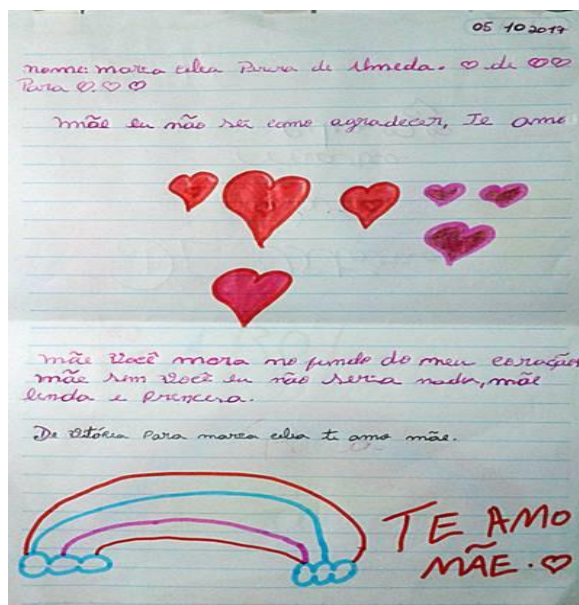 05 10 2017
nome: marea celea Perera de Almeda. ♡ de ♡♡
Para ♡♡♡
mãe eu não sei como agradecer, Te amo
mãe você mora no fundo do meu coração
mãe sem você eu não seria nada, mãe
linda e princesa.
De Vitória Para marea celea ti amo mãe.
TE AMO
MÃE. ♡